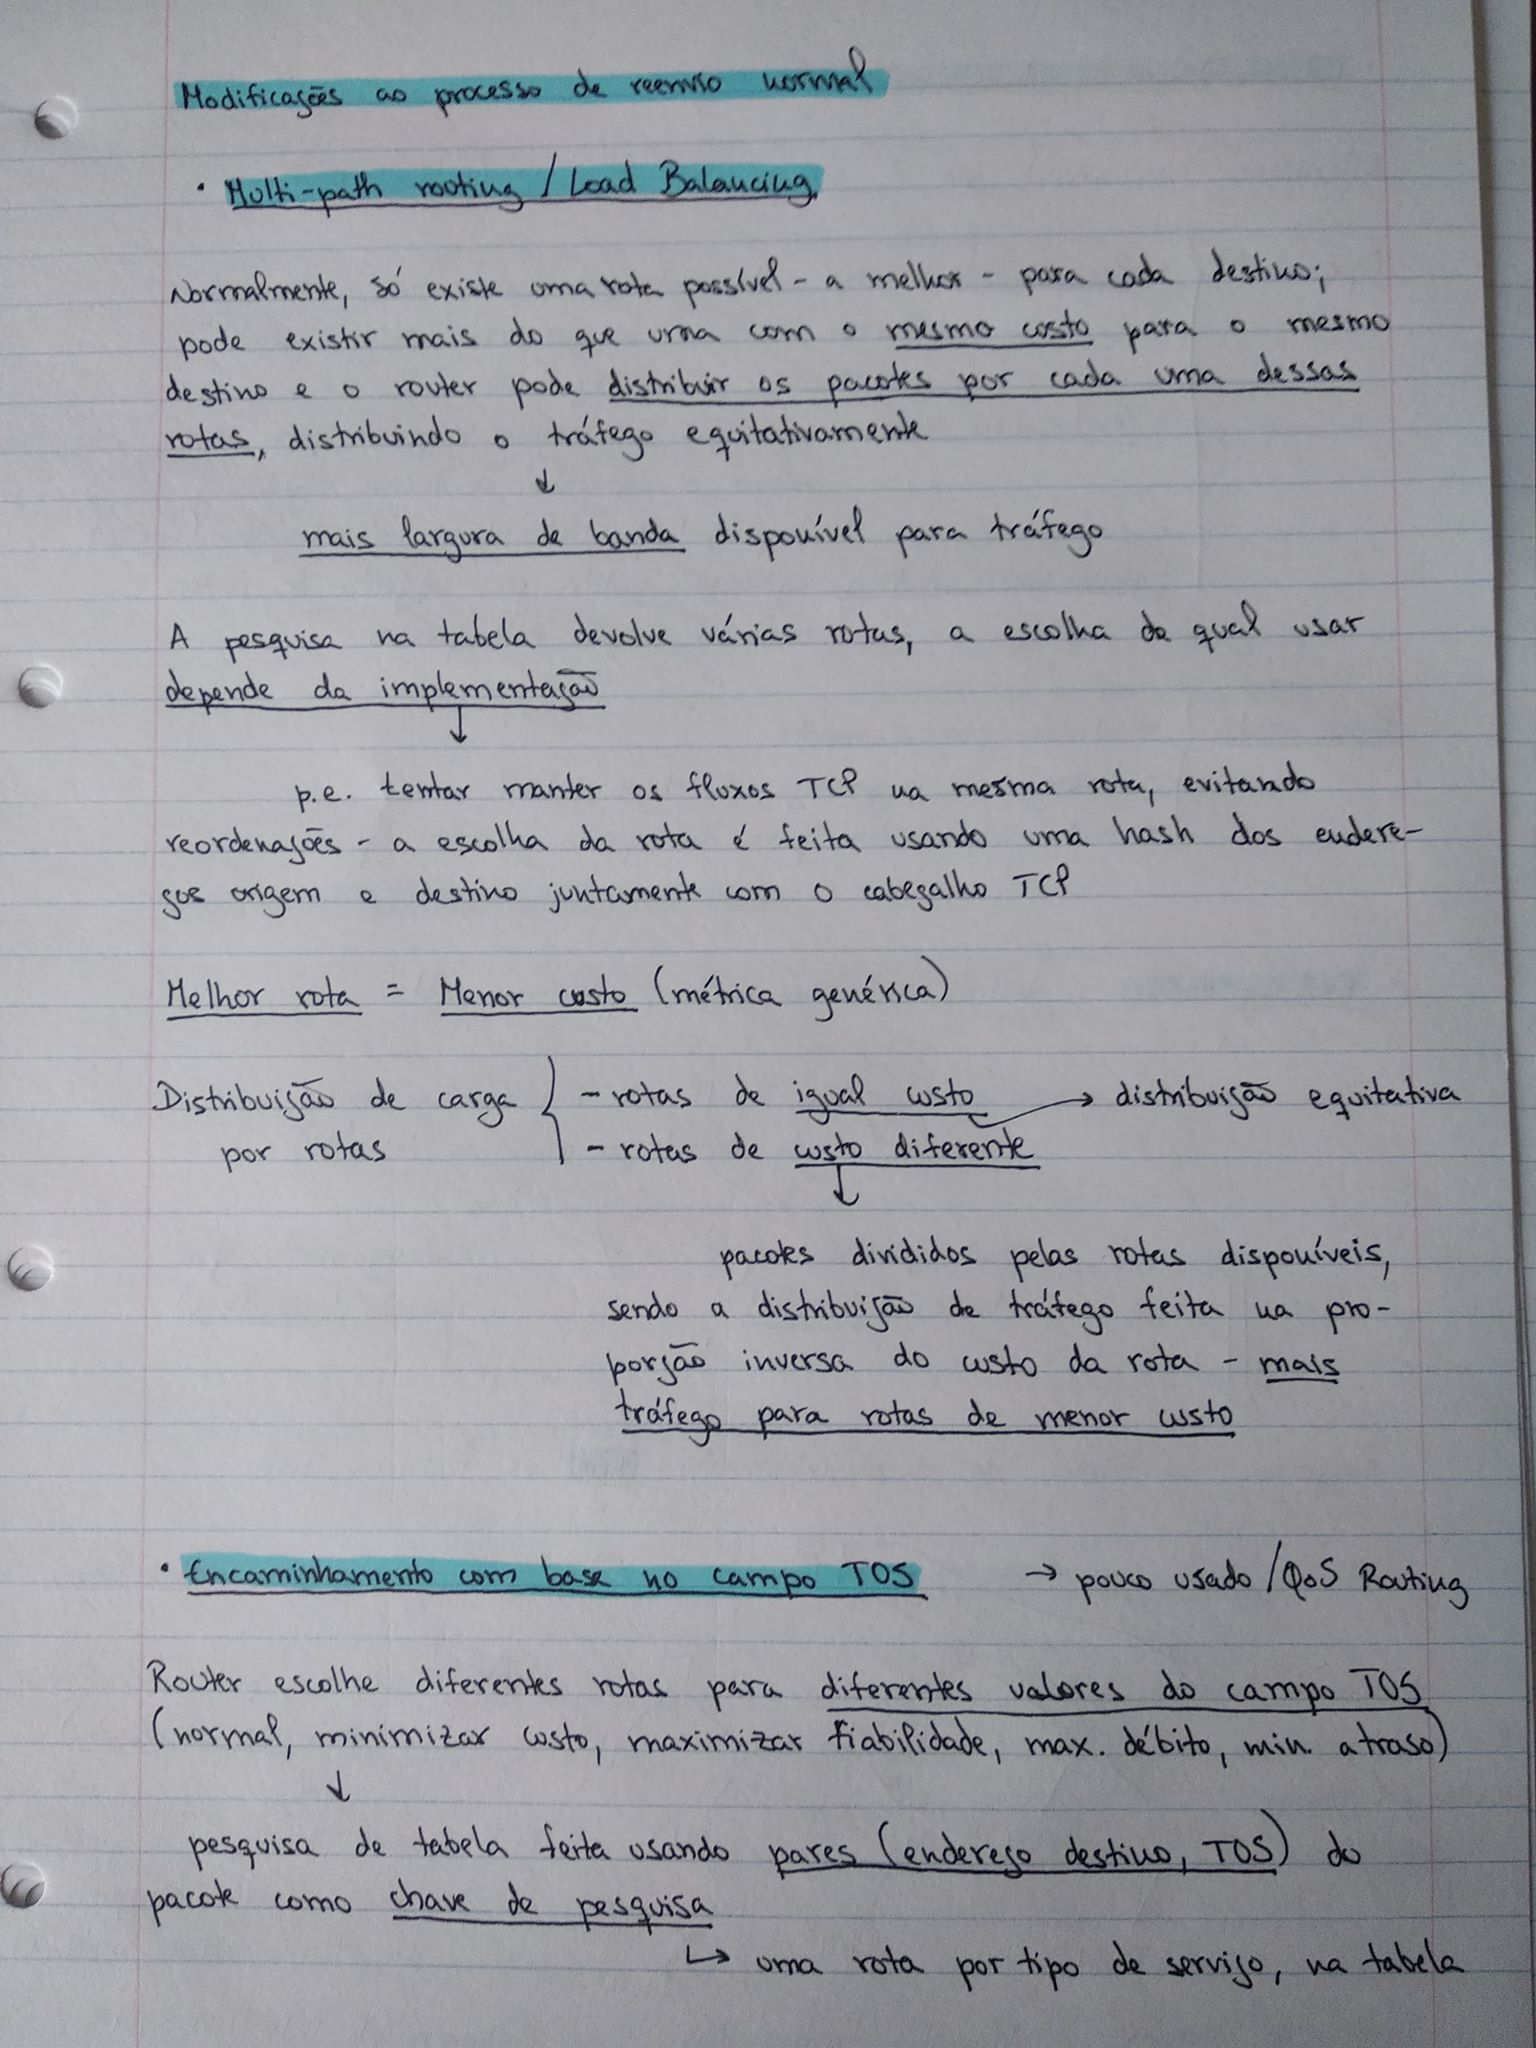 Modificações ao processo de reenvio normal
· Multi-path routing / Load Balancing
Normalmente, só existe uma rota possível - a melhor - para cada destino;
pode existir mais do que uma com o mesmo custo para o mesmo
destino e o router pode distribuir os pacotes por cada uma dessas
rotas, distribuindo o tráfego equitativamente
↓
mais largura de banda disponível para tráfego
A pesquisa na tabela devolve várias rotas, a escolha da qual usar
depende da implementação
↓
p.e. tentar manter os fluxos TCP na mesma rota, evitando
reordenações - a escolha da rota é feita usando uma hash dos endere-
ços origem e destino juntamente com o cabeçalho TCP
Melhor rota = Menor custo (métrica genérica)
Distribuição de carga { - rotas de igual custo → distribuição equitativa
por rotas - rotas de custo diferente
↓
pacotes divididos pelas rotas disponíveis,
sendo a distribuição de tráfego feita na pro-
porção inversa do custo da rota - mais
tráfego para rotas de menor custo
· Encaminhamento com base no campo TOS → pouco usado / QoS Routing
Router escolhe diferentes rotas para diferentes valores do campo TOS
(normal, minimizar custo, maximizar fiabilidade, max. débito, min. atraso)
↓
pesquisa de tabela feita usando pares (endereço destino, TOS) do
pacote como chave de pesquisa
↳ uma rota por tipo de serviço, na tabela